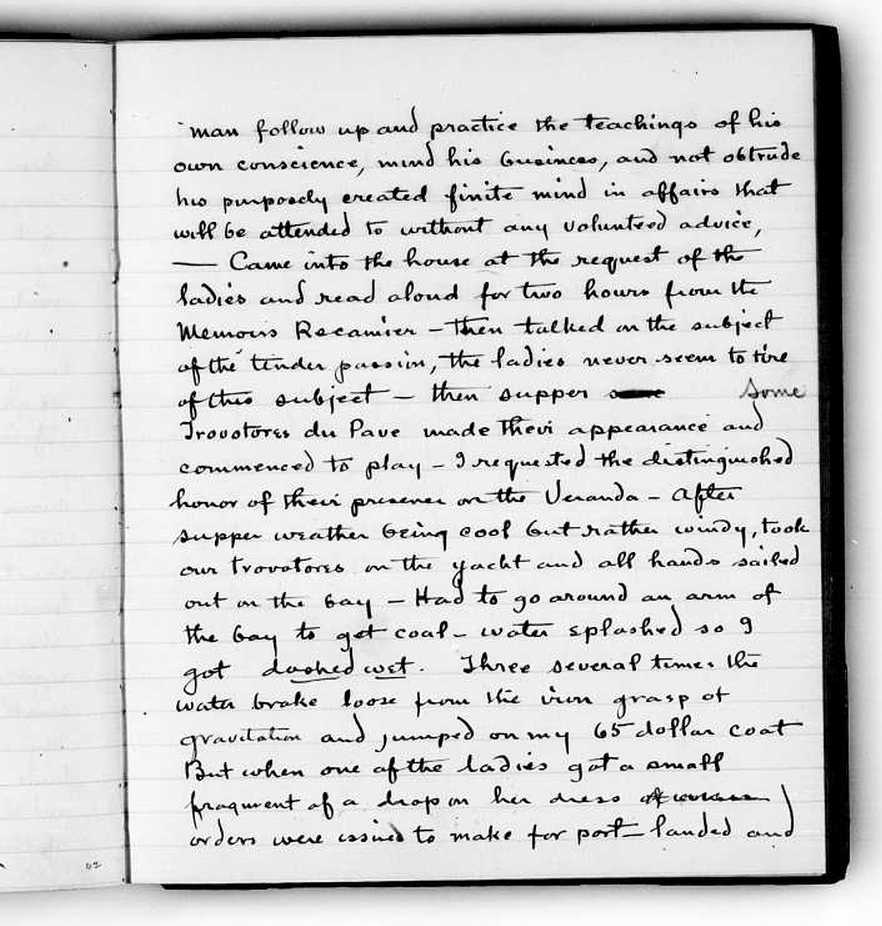 man follow up and practice the teachings of his
own conscience, mind his business, and not obtrude
his purposely created finite mind in affairs that
will be attended to without any volunteed advice,
— Came into the house at the request of the
ladies and read aloud for two hours from the
Memoirs Recamier - then talked on the subject
of the tender passion, the ladies never seem to tire
of this subject - then supper Some
Trovotores du Pave made their appearance and
commenced to play - I requested the distinguished
honor of their presence on the Veranda - After
supper weather being cool but rather windy, took
our trovotores on the yacht and all hands sailed
out on the bay - Had to go around an arm of
the bay to get coal - water splashed so I
got dashed wet. Three several times the
water brake loose from the iron grasp of
gravitation and jumped on my 65 dollar coat
But when one of the ladies got a small
fragment of a drop on her dress
orders were issued to make for port - landed and